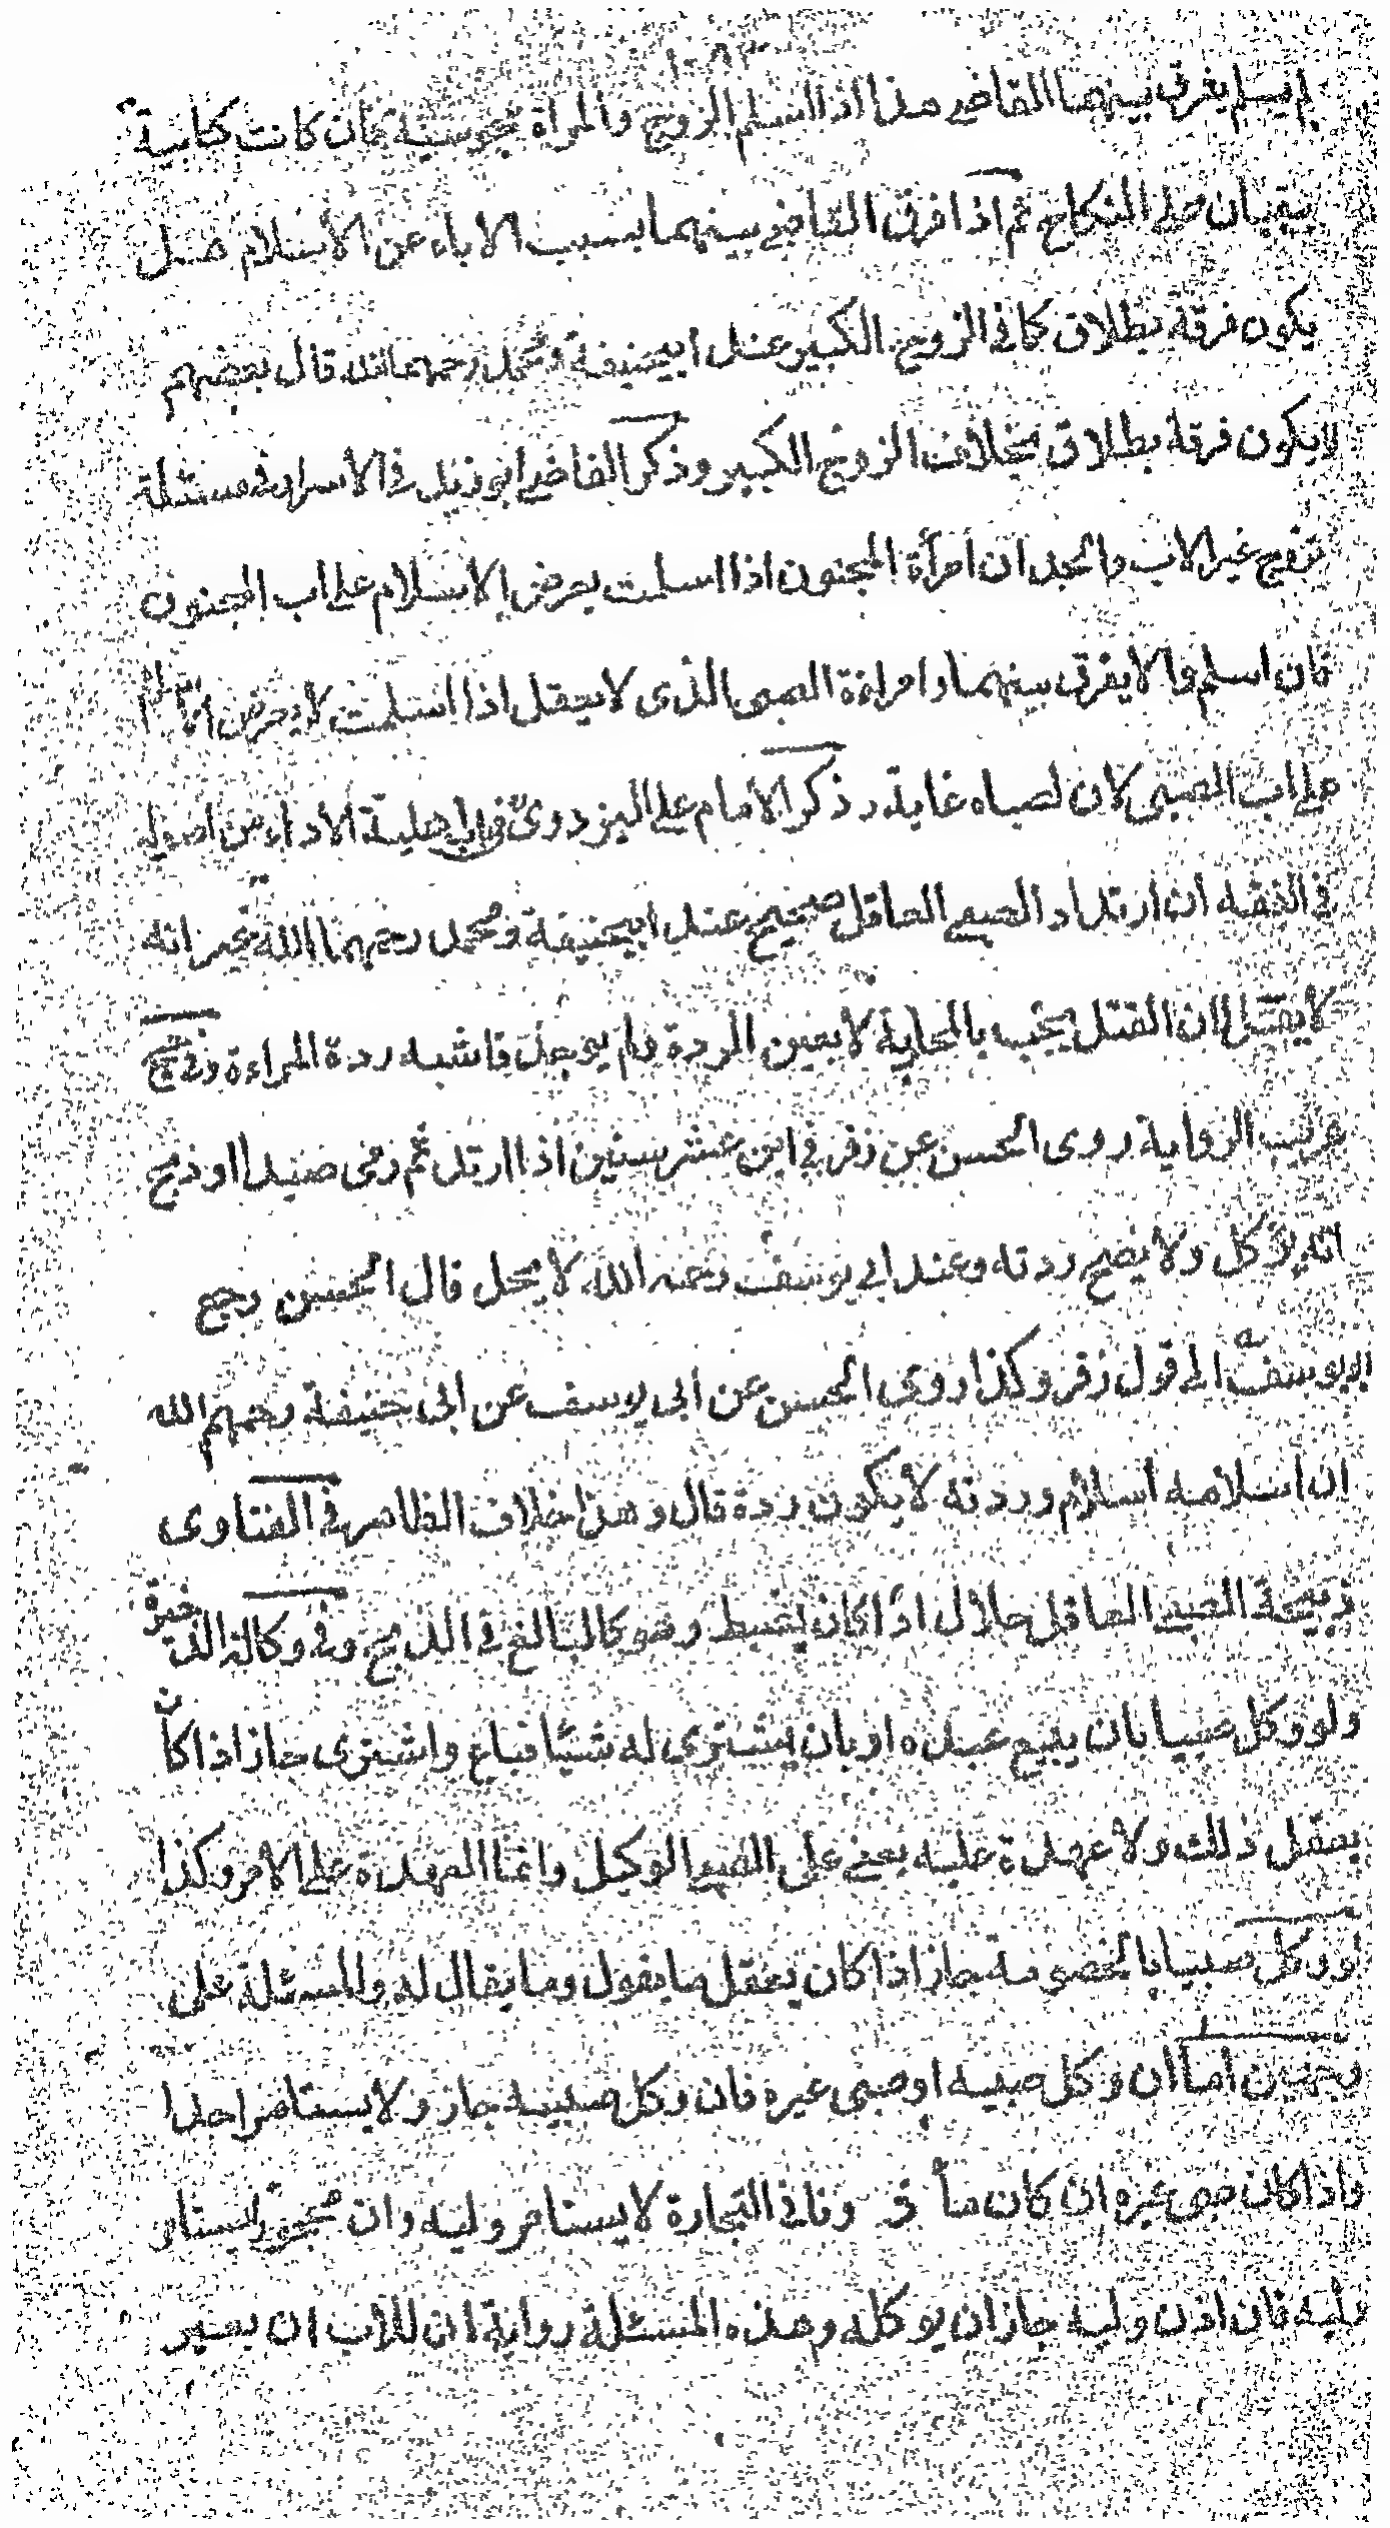 لم يسلم يفرق بينهما القاضي هذا اذا اسلم الزوج والمراة مجوسية فان كانت كتابية
يبقيان على النكاح ثم اذا فرق القاضي بينهما بسبب الاباء عن الاسلام هل
يكون فرقة بطلاق كما في الزوج الكبير عند ابيحنيفة ومحمد رحمهما الله قال بعضهم
لا يكون فرقة بطلاق بخلاف الزوج الكبير وذكر القاضي ابو زيد في الاسرار في مسئلة
تزوج غير الاب والجد ان امرأة المجنون اذا اسلمت يعرض الاسلام على اب المجنون
فان اسلم والا يفرق بينهما وامراءة الصبي الذى لا يعقل اذا اسلمت لا يعرض
على اب الصبي لان لصباه غاية وذكر الامام على البزدوىّ في اهلية الاداء من اصوله
في الفقه ان ارتداد الصبي العاقل صحيح عند ابيحنيفة ومحمد رحمهما الله غير انه
لا يقتل لان القتل يجب بالمحاربة لا بعين الردة ولم يوجد فاشبه ردة المراءة وفي
غريب الرواية روى الحسن عن زفر في ابن عشر سنين اذا ارتد ثم رمى صيدا او ذبح
انه يؤكل ولا يصح ردته وعند ابي يوسف رحمه الله لا يحل قال الحسن رجع
ابو يوسف الى قول زفر وكذا روى الحسن عن ابى يوسف عن ابى حنيفة رحمهم الله
ان اسلامه اسلام وردته لا يكون ردة قال وهذا خلاف الظاهر في الفتاوى
ذبيحة الصبي العاقل حلال اذا كان يضبط وهو كالبالغ في الذبح وفي وكالة الذخيرة
ولو وكل صبيا بان يبيع عبده او بان يشترى له شيئا فباع واشترى جاز اذا كان
يعقل ذلك ولا عهدة عليه يعنى على الصبي الوكيل وانما العهدة على الامر وكذا
لو وكل صبيا بالخصومة جاز اذا كان يعقل ما يقول وما يقال له والمسئلة على
وجهين اما ان وكل صبيه او صبى غيره فان وكل صبيه جاز ولا يستامر احدا
واذا كان صبى غيره ان كان مأذونا في التجارة لا يستامر وليه وان محجورا يستامر
وليه فان اذن وليه جاز ان يوكله وهذه المسئلة رواية ان للاب ان يعير